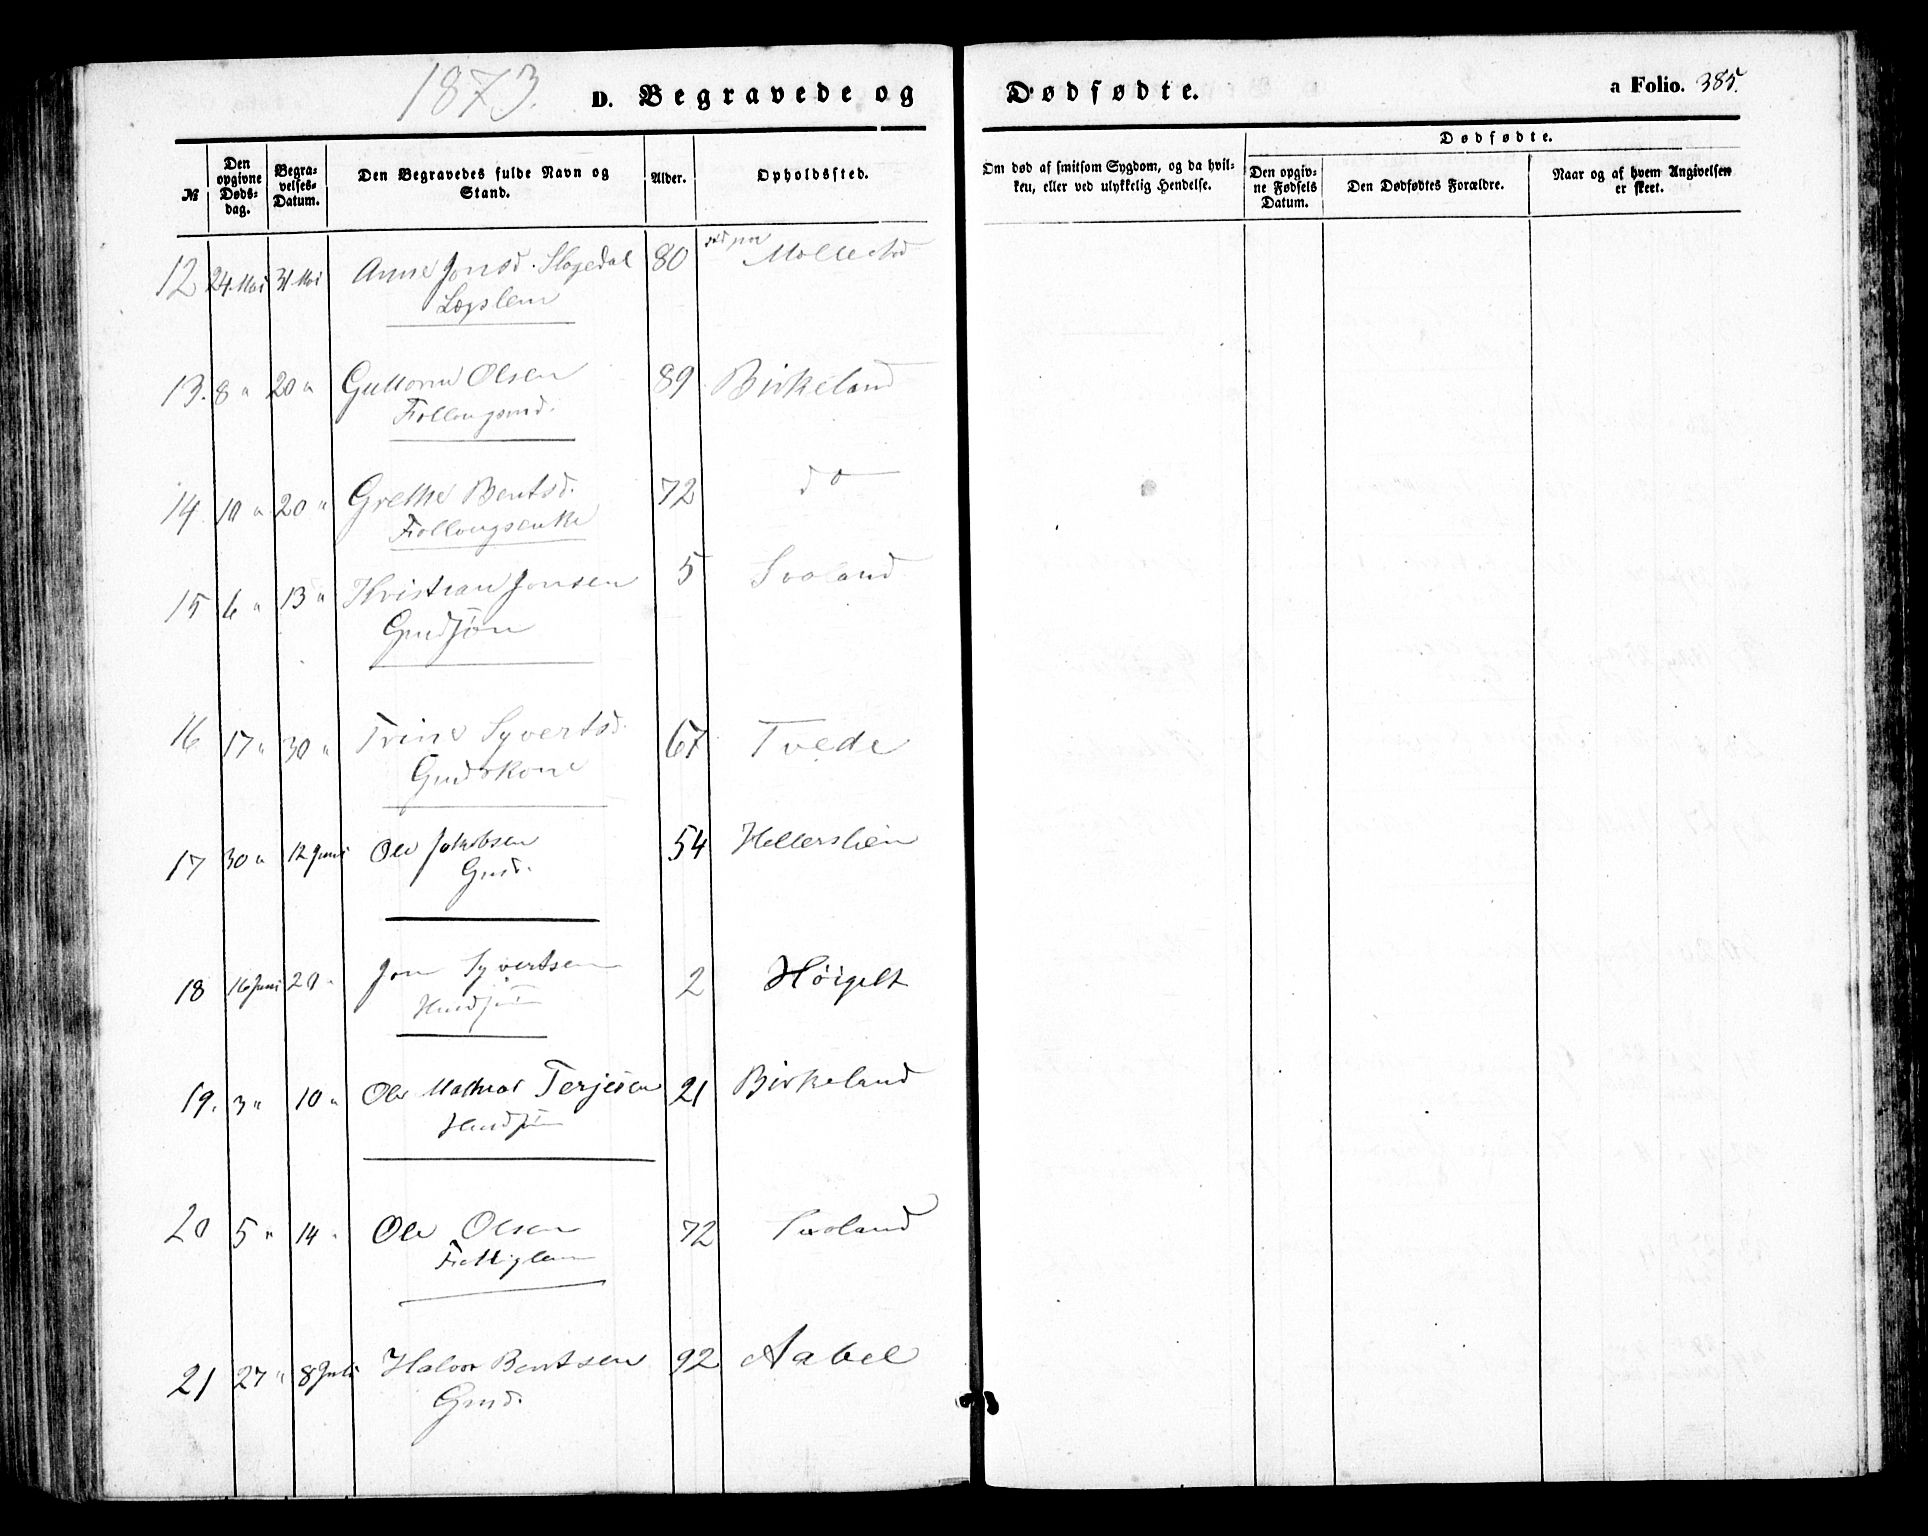 1873.
D. Begravede og Dødfødte.
a Folio. 385.
№
Den opgivne Døds-dag.
Begra-velses-Datum.
Den Begravedes fulde Navn og Stand.
Alder.
Opholdssted.
Om død af smitsom Sygdom, og da hvil-ken, eller ved ulykkelig Hendelse.
Dødfødte.
Den opgiv-ne Fødsels Datum.
Den Dødfødtes Forældre.
Naar og af hvem Angivelsen er skeet.
12 24 Mai 31 Mai Anne Jonsd. Slogedal 80 Mollestad
Lægslem
13. 8 " 20 " Guttorm Olsen 89 Birkeland
Follougsmd.
14 10 " 20 " Grethe Bentsd. 72 do
Follougsenke
15 6 " 13 " Kristian Jonsen 5 Svaland
Gmdsøn
16 17 " 30 " Trine Syvertsd. 67 Tvede
Gmdskone
17 30 " 12 Juni Ole Jakobsen 54 Hellerslien
Gmd.
18 16 Juni 20 " Jon Syvertsen 2 Høigelt
Husdsøn
19. 3 " 10 " Ole Mathias Terjesen 21 Birkeland
Husdsøn
20 5 " 14 " Ole Olsen 72 Svaland
Fattiglem
21 27 " 8 Juli Halvor Bentsen 92 Aabel
Gmd.